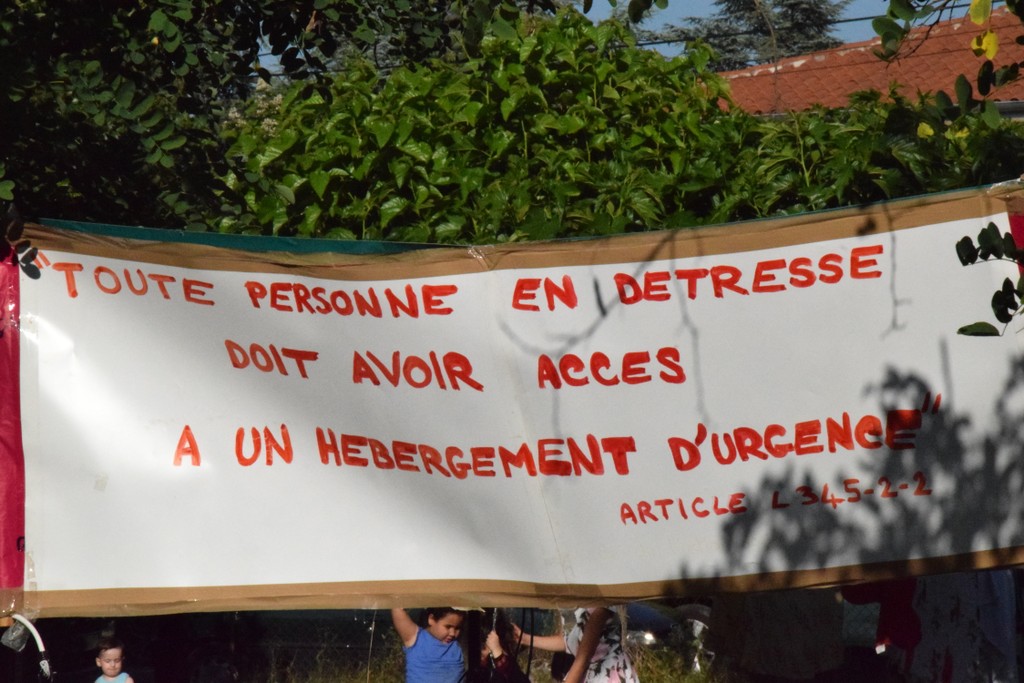 "TOUTE PERSONNE EN DETRESSE
DOIT AVOIR ACCES
A UN HEBERGEMENT D'URGENCE"
ARTICLE L 345-2-2